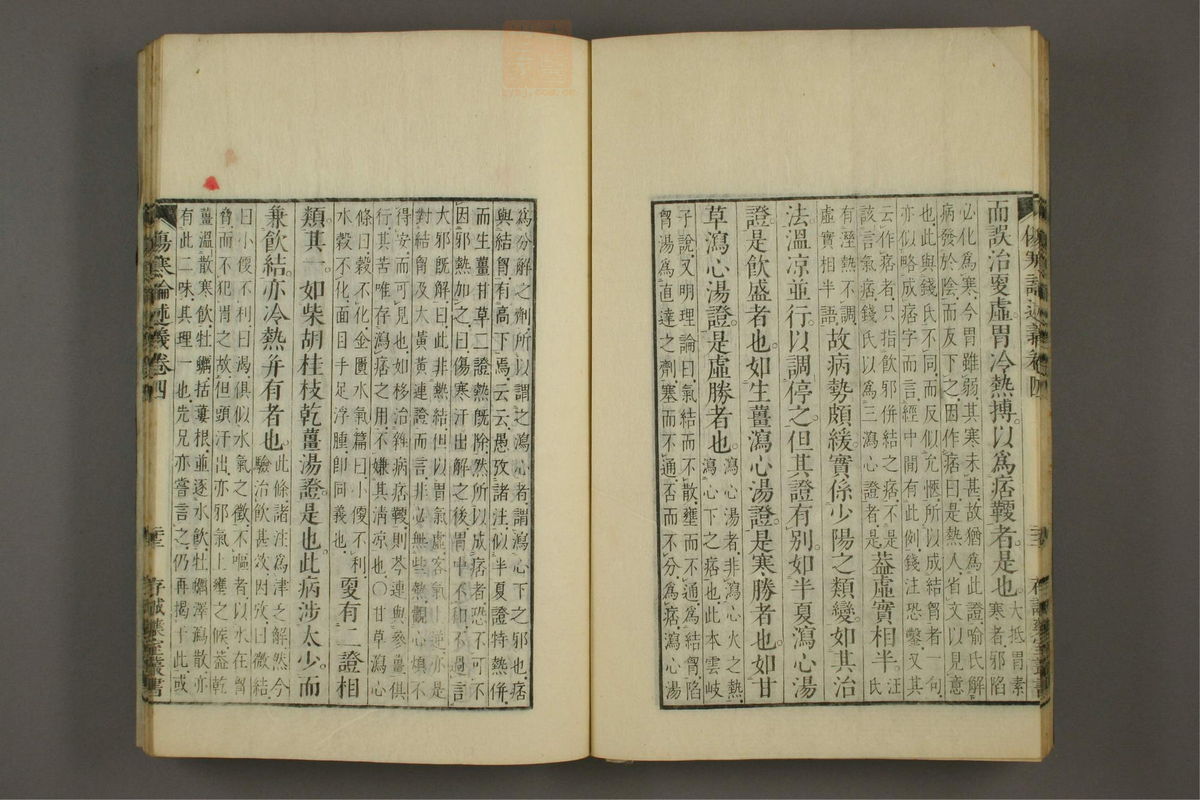 傷寒論述義卷四
存誠藥室叢書
而誤治胃虛冷熱搏以爲痞鞕者是也大抵胃素寒者邪陷
必化爲寒今胃雖弱其寒未甚故猶爲此證喻氏解
病發於陰而反下之因作痞曰是熱人省文以見意
也此與錢氏不同而反似允愜所以成結胷者句
亦似略成痞字而言經中閒有此例錢注恐鑿又其
云作痞者只指飲邪併結之痞不是
該言氣痞錢氏以爲三瀉心證者是
蓋虛實相半汪氏
有溼熱不調
虛實相半語
故病勢頗緩實係少陽之類變如其治
法溫凉並行以調停之但其證有別如半夏瀉心湯
證是飲盛者也如生薑瀉心湯證是寒勝者也如甘
草瀉心湯證是虛勝者也
瀉心湯者非瀉心火之熱
瀉心下之痞也此本雲岐
子說又明理論曰氣結而不散壅而不通爲結胷陷
胷湯爲直達之劑塞而不通否而不分爲痞瀉心湯
爲分解之劑所以謂之瀉心者謂瀉心下之邪也痞
與結胷有高下焉云云愚攷諸注似半夏證特熱併
而生薑甘草二證熱旣除然所以成痞者恐不可不
因邪熱加之曰傷寒汗出解之後胃中不和不過言
大邪旣解曰此非熱結但以胃氣虛客氣上逆亦是
對結胷及大黃黃連證而言非必無些熱觀心煩不
得安而可見也如移治雜病痞鞕則芩連與參薑俱
行其苦唯存瀉痞之用不嫌其淸凉也○甘草瀉心
條曰穀不化金匱水氣篇曰小便不利
水穀不化面目手足浮腫卽同義也
更有二證相
類其一如柴胡桂枝乾薑湯證是也此病涉太少而
兼飲結亦冷熱并有者也
此條諸注爲津乏解然今
驗治飲甚效因攷曰微結
曰小便不利曰渴俱似水氣之徵不嘔者以水在胷
脅而不犯胃之故但頭汗出亦邪氣上壅之候蓋乾
薑溫散寒飲牡蠣括蔞根並逐水飲牡蠣澤瀉散亦
有此二味其理一也先兄亦嘗言之仍再揭于此或
傷寒論述義卷四
存誠藥室叢書